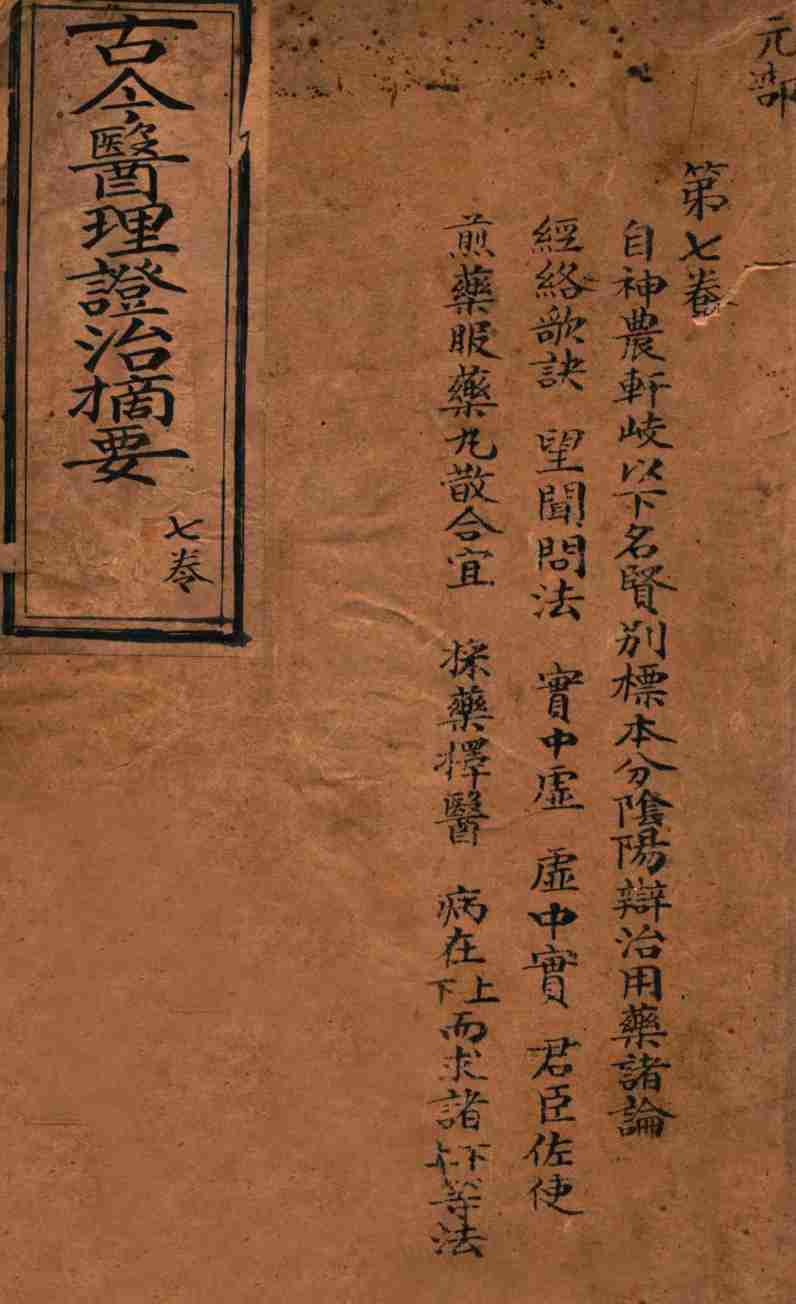 元部
第七卷
自神農軒岐以下名賢別標本分陰陽辯治用藥諸論
經絡歌訣 望聞問法 實中虛 虛中實 君臣佐使
煎藥服藥丸散合宜 採藥擇醫 病在上下而求諸下上等法
古今醫理證治摘要
七卷